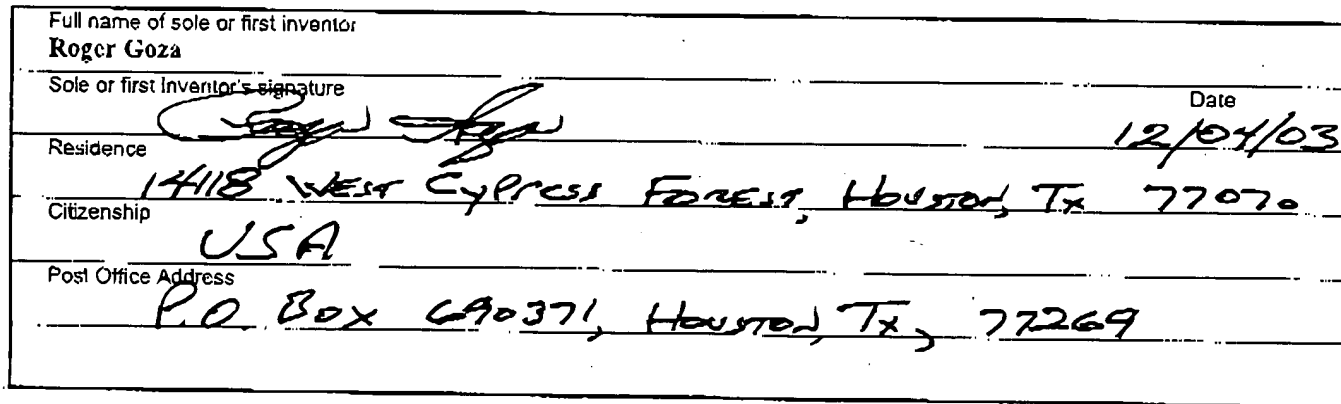 Full name of sole or first inventor
Roger Goza
Sole or first Inventor's signature
Date
12/04/03
Residence
14118 West Cypress Forest, Houston, Tx 77070
Citizenship
USA
Post Office Address
P.O. Box 690371, Houston, Tx, 77269